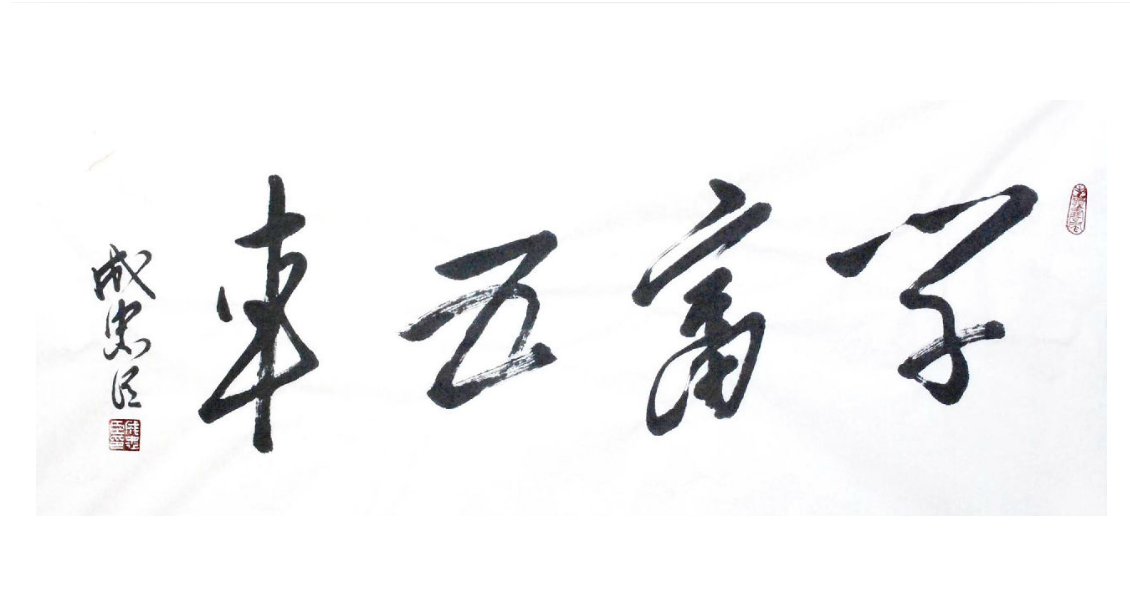 学富五車
成忠臣